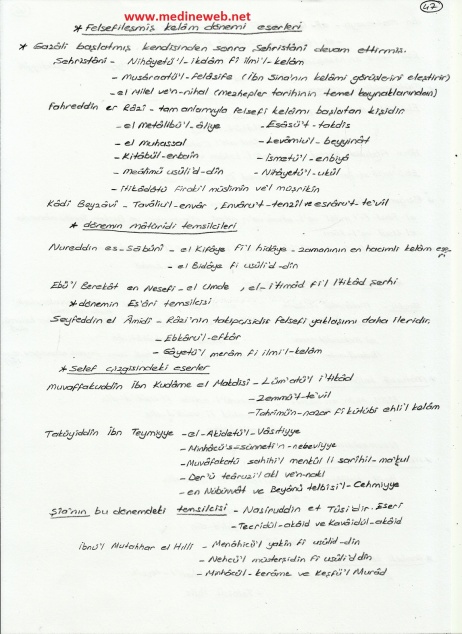 www.medineweb.net
42
* Felsefileşmiş kelâm dönemi eserleri
* Gazâli başlatmış kendisinden sonra Şehristâni devam ettirmiş.
Şehristâni - Nihâyetü'l-ikdam fi ilmi'l-kelâm
- Musâraatü'l-felâsife (ibn Sina'nın kelâmi görüşlerini eleştirir)
- el Milel ve'n-nihal (mezhepler tarihinin temel kaynaklarından)
Fahreddin er Râzi - tam anlamıyla felsefi kelâmı başlatan kişidir
- el Metâlibü'l-âliye - Esâsü't-takdis
- el muhassal - Levâmiu'l-beyyinât
- Kitâbül-erbain - ismetü'l-enbiyâ
- meâlimü usûli'd-din - Nihâyetü'l-ukûl
- itikâdâtü firaki'l müslimin ve'l müşrikin
Kâdi Beyzâvi - Tavâliu'l-envâr, Envâru't-tenzil ve esrâru't-te'vil
* dönemin mâturidi temsilcileri
Nureddin es-Sâbûni - el Kifâye fi'l hidâye - zamanının en hacimli kelâm eseri
- el Bidâye fi usûli'd-din
Ebû'l Berekât en Nesefi - el Umde, el-i'timad fi'l i'tikâd şerhi
* dönemin Eş'âri temsilcisi
Seyfeddin el Âmidi - Râzi'nin takipçisidir felsefi yaklaşımı daha ileridir.
- Ebkâru'l-efkâr
- Gâyetü'l merâm fi ilmi'l-kelâm
* Selef çizgisindeki eserler
muvaffakuddin ibn Kudâme el Makdisi - Lüm'atü'l i'tikâd
- Zemmü't-te'vil
- Tahrimün-nazar fi kütübi ehli'l kelâm
Takiyiddin ibn Teymiyye - el-Akidetü'l-Vâsıtiyye
- Minhâcü's-sünneti'n-nebeviyye
- Muvâfakatü sahihi'l menkûl li sarihil-ma'kul
- Der'ü teâruzi'l akl ve'n-nakl
- en Nübüvvât ve Beyânü telbisi'l-Cehmiyye
Şia'nın bu dönemdeki temsilcisi - Nasiruddin et Tûsi'dir. Eseri
- Tecridül-akâid ve Kavâidül-akâid
ibnü'l Mutahhar el Hilli - Menâhicü'l yakin fi usûlid-din
- Nehcü'l müsterşidin fi usûli'd din
- Minhâcül-kerâme ve Keşfü'l Murâd